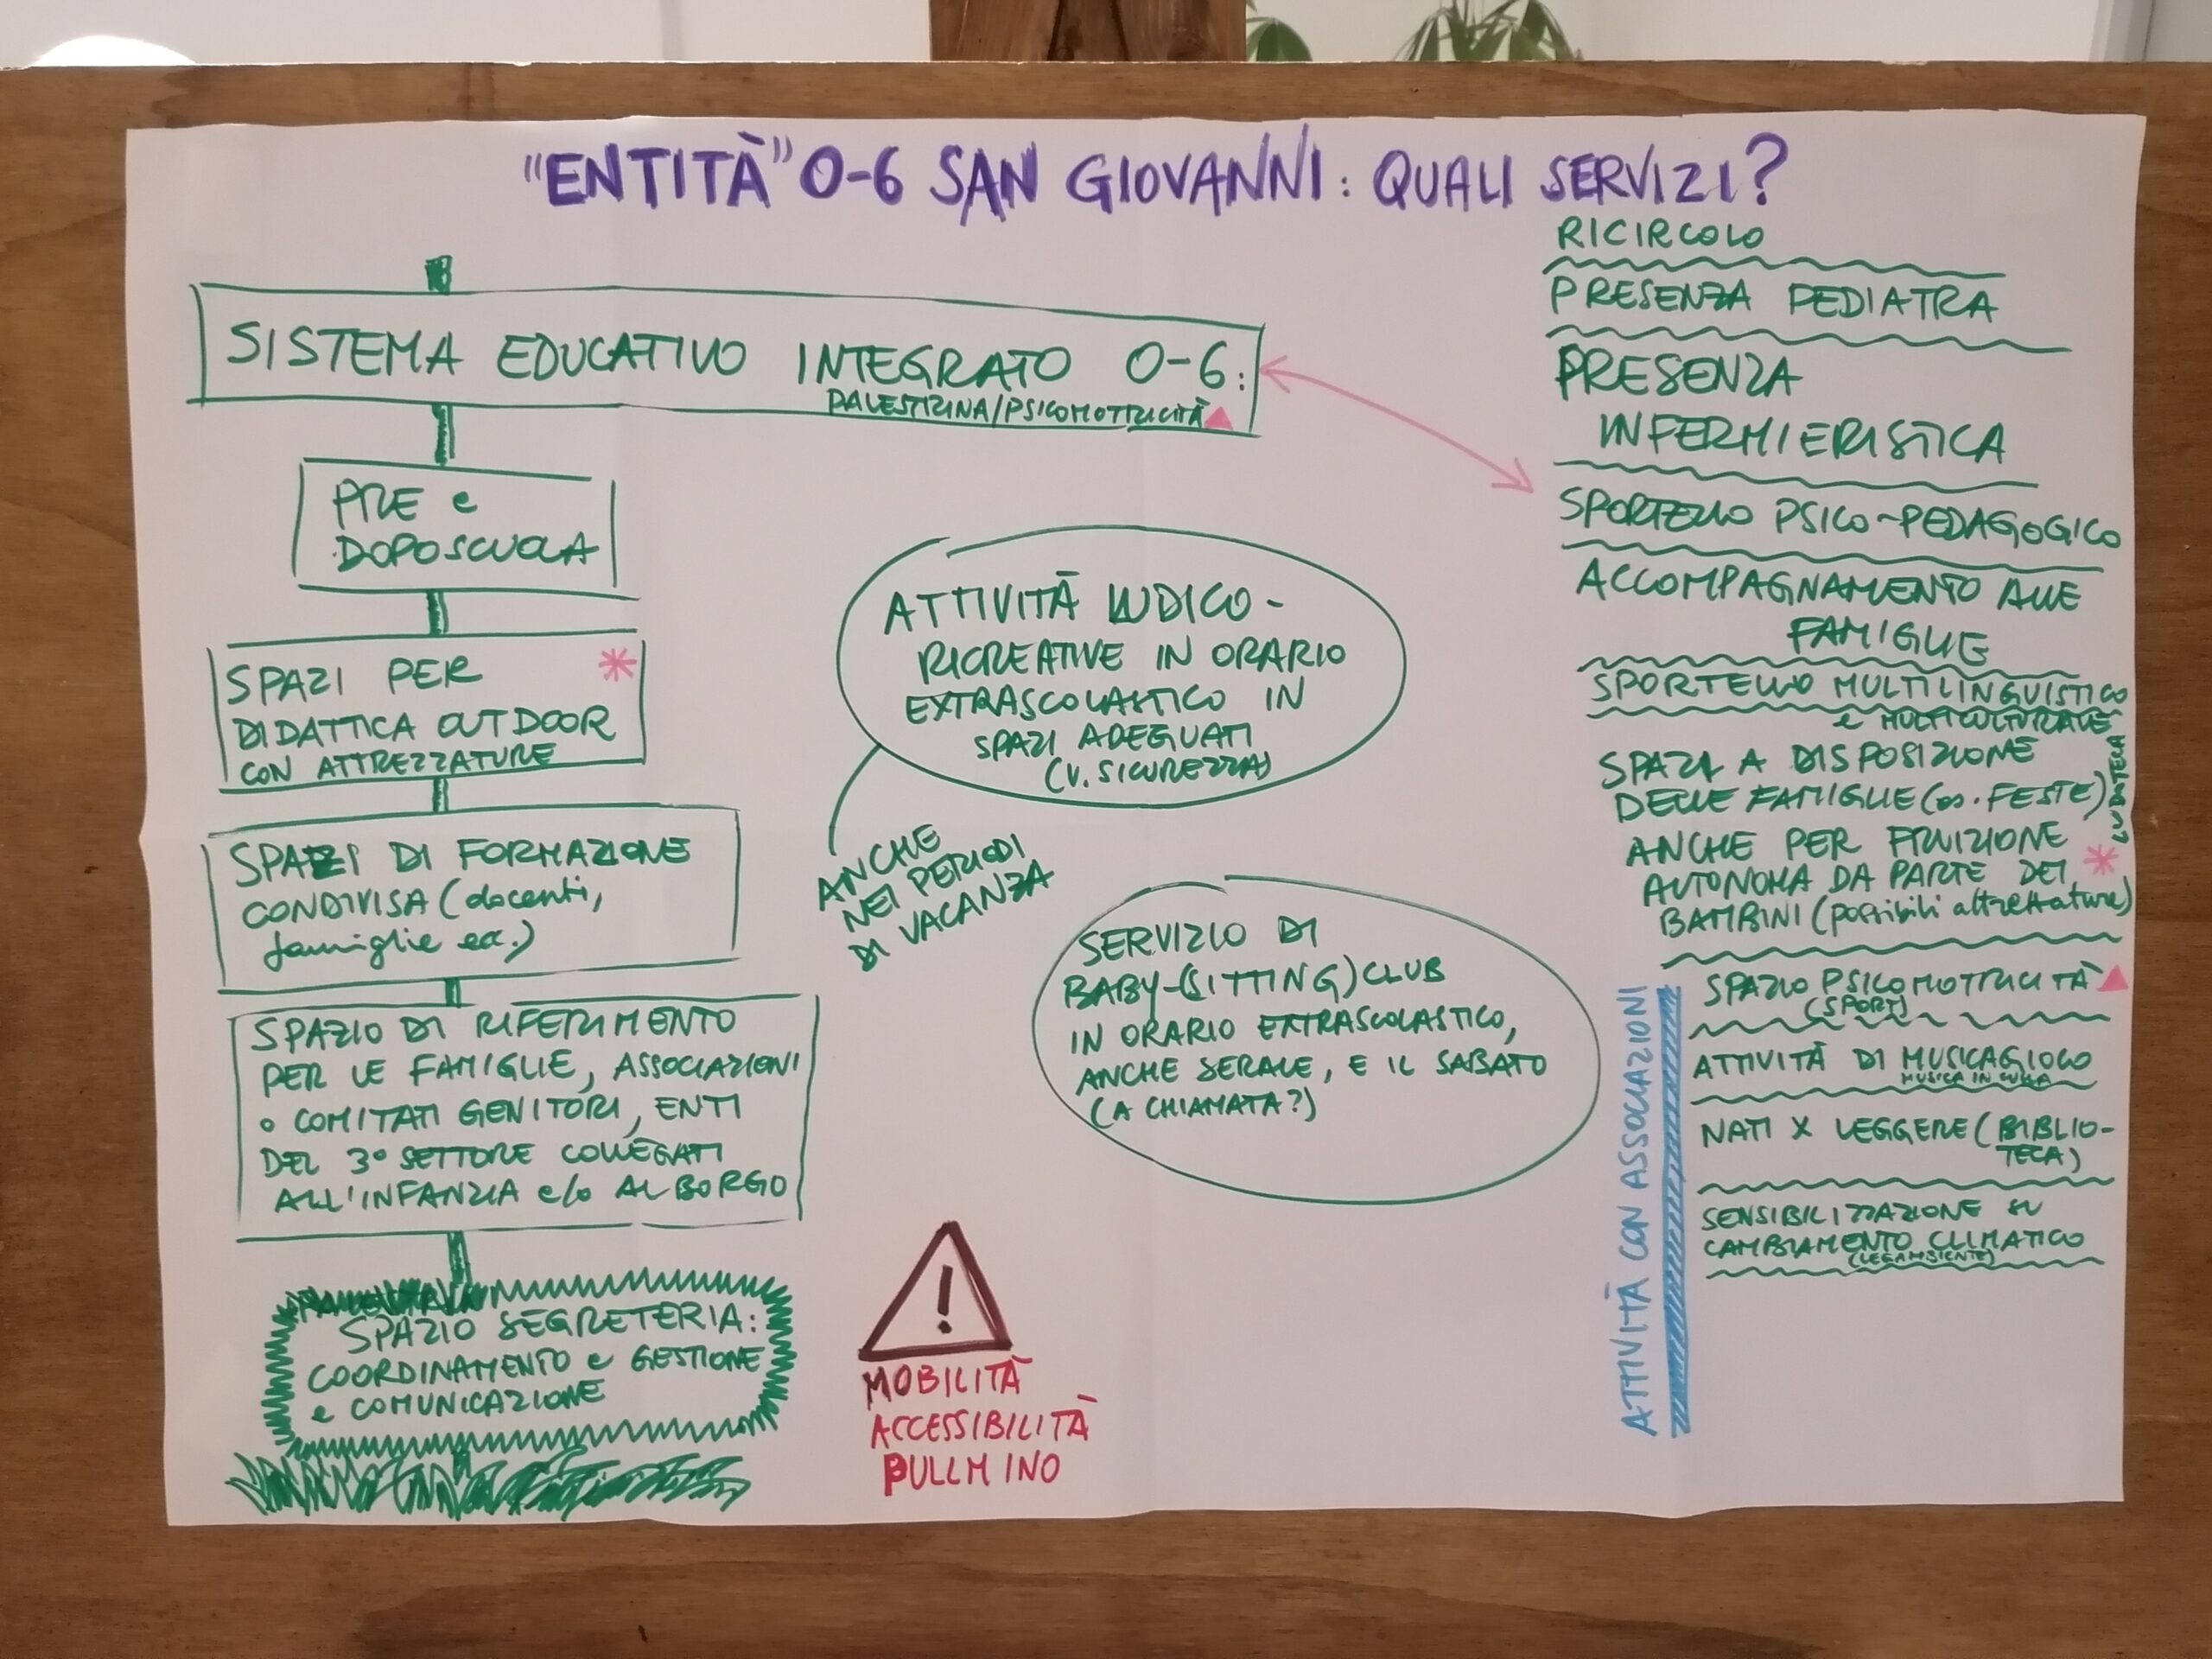 "ENTITÀ" 0-6 SAN GIOVANNI: QUALI SERVIZI?
SISTEMA EDUCATIVO INTEGRATO 0-6:
PALESTRINA/PSICOMOTRICITÀ
PRE e
DOPOSCUOLA
SPAZI PER
DIDATTICA OUTDOOR
CON ATTREZZATURE
SPAZI DI FORMAZIONE
CONDIVISA (docenti,
famiglie ecc.)
SPAZIO DI RIFERIMENTO
PER LE FAMIGLIE, ASSOCIAZIONI
o COMITATI GENITORI, ENTI
DEL 3° SETTORE COLLEGATI
ALL'INFANZIA e/o AL BORGO
SPAZIO SEGRETERIA:
COORDINAMENTO e GESTIONE
e COMUNICAZIONE
ATTIVITÀ LUDICO-
RICREATIVE IN ORARIO
EXTRASCOLASTICO IN
SPAZI ADEGUATI
(V. SICUREZZA)
ANCHE
NEI PERIODI
DI VACANZA
SERVIZIO DI
BABY-(SITTING) CLUB
IN ORARIO EXTRASCOLASTICO,
ANCHE SERALE, E IL SABATO
(A CHIAMATA?)
!
MOBILITÀ
ACCESSIBILITÀ
PULLMINO
RICIRCOLO
PRESENZA PEDIATRA
PRESENZA
INFERMIERISTICA
SPORTELLO PSICO-PEDAGOGICO
ACCOMPAGNAMENTO ALLE
FAMIGLIE
SPORTELLO MULTILINGUISTICO
e MULTICULTURALE
SPAZI A DISPOSIZIONE
DELLE FAMIGLIE (es. FESTE)
LUDOTECA
ANCHE PER FRUIZIONE
AUTONOMA DA PARTE DEI
BAMBINI (possibili attrezzature)
SPAZIO PSICOMOTRICITÀ
(SPORT)
ATTIVITÀ DI MUSICAGIOCO
MUSICA IN CULLA
NATI X LEGGERE (BIBLIO-
TECA)
SENSIBILIZZAZIONE SU
CAMBIAMENTO CLIMATICO
(LEGAMBIENTE)
ATTIVITÀ CON ASSOCIAZIONI